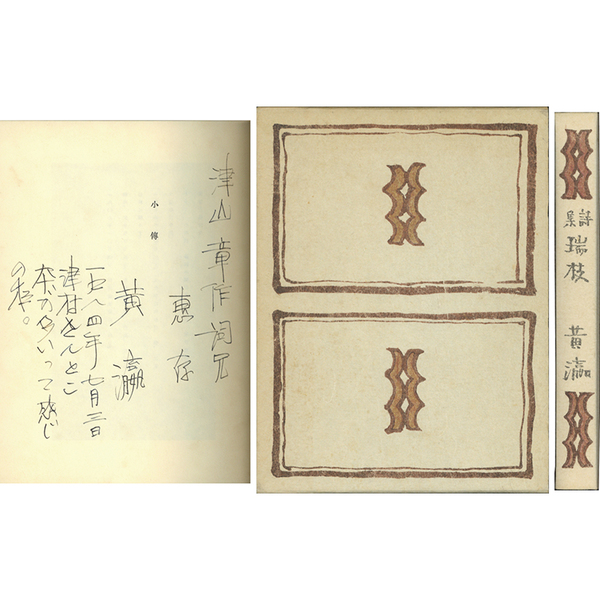 津山章作詞兄
惠存
小傳
黄瀛
一九八四年七月三日
津村さんとこ
いって感じ
の本。
詩集
瑞枝
黄瀛